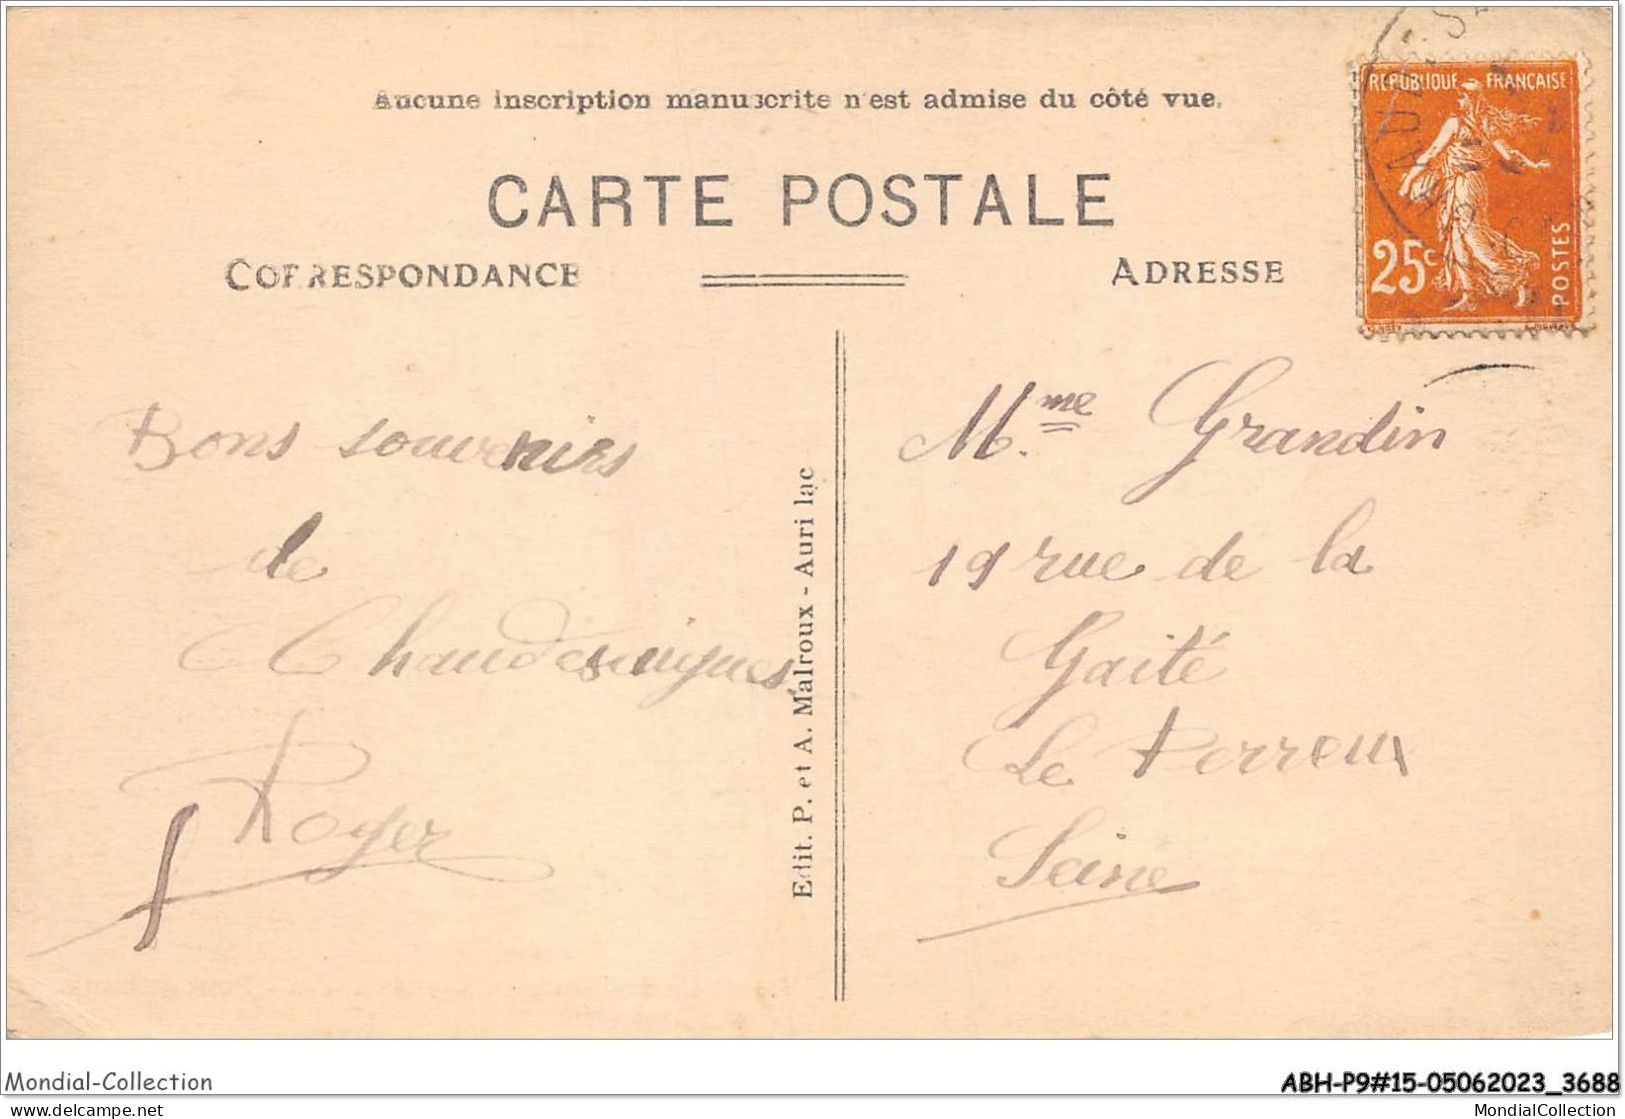 Aucune inscription manuscrite n'est admise du côté vue.
CARTE POSTALE
CORRESPONDANCE
ADRESSE
REPUBLIQUE FRANÇAISE
25c
POSTES
Bons souvenirs
de
Chaudesaigues.
Roger
Edit. P. et A. Malroux - Aurilac
Mme Grandin
19 rue de la
Gaité
Le Perreux
Seine
Mondial-Collection
ABH-P9#15-05062023_3688
mypostcard.com
MondialCollection